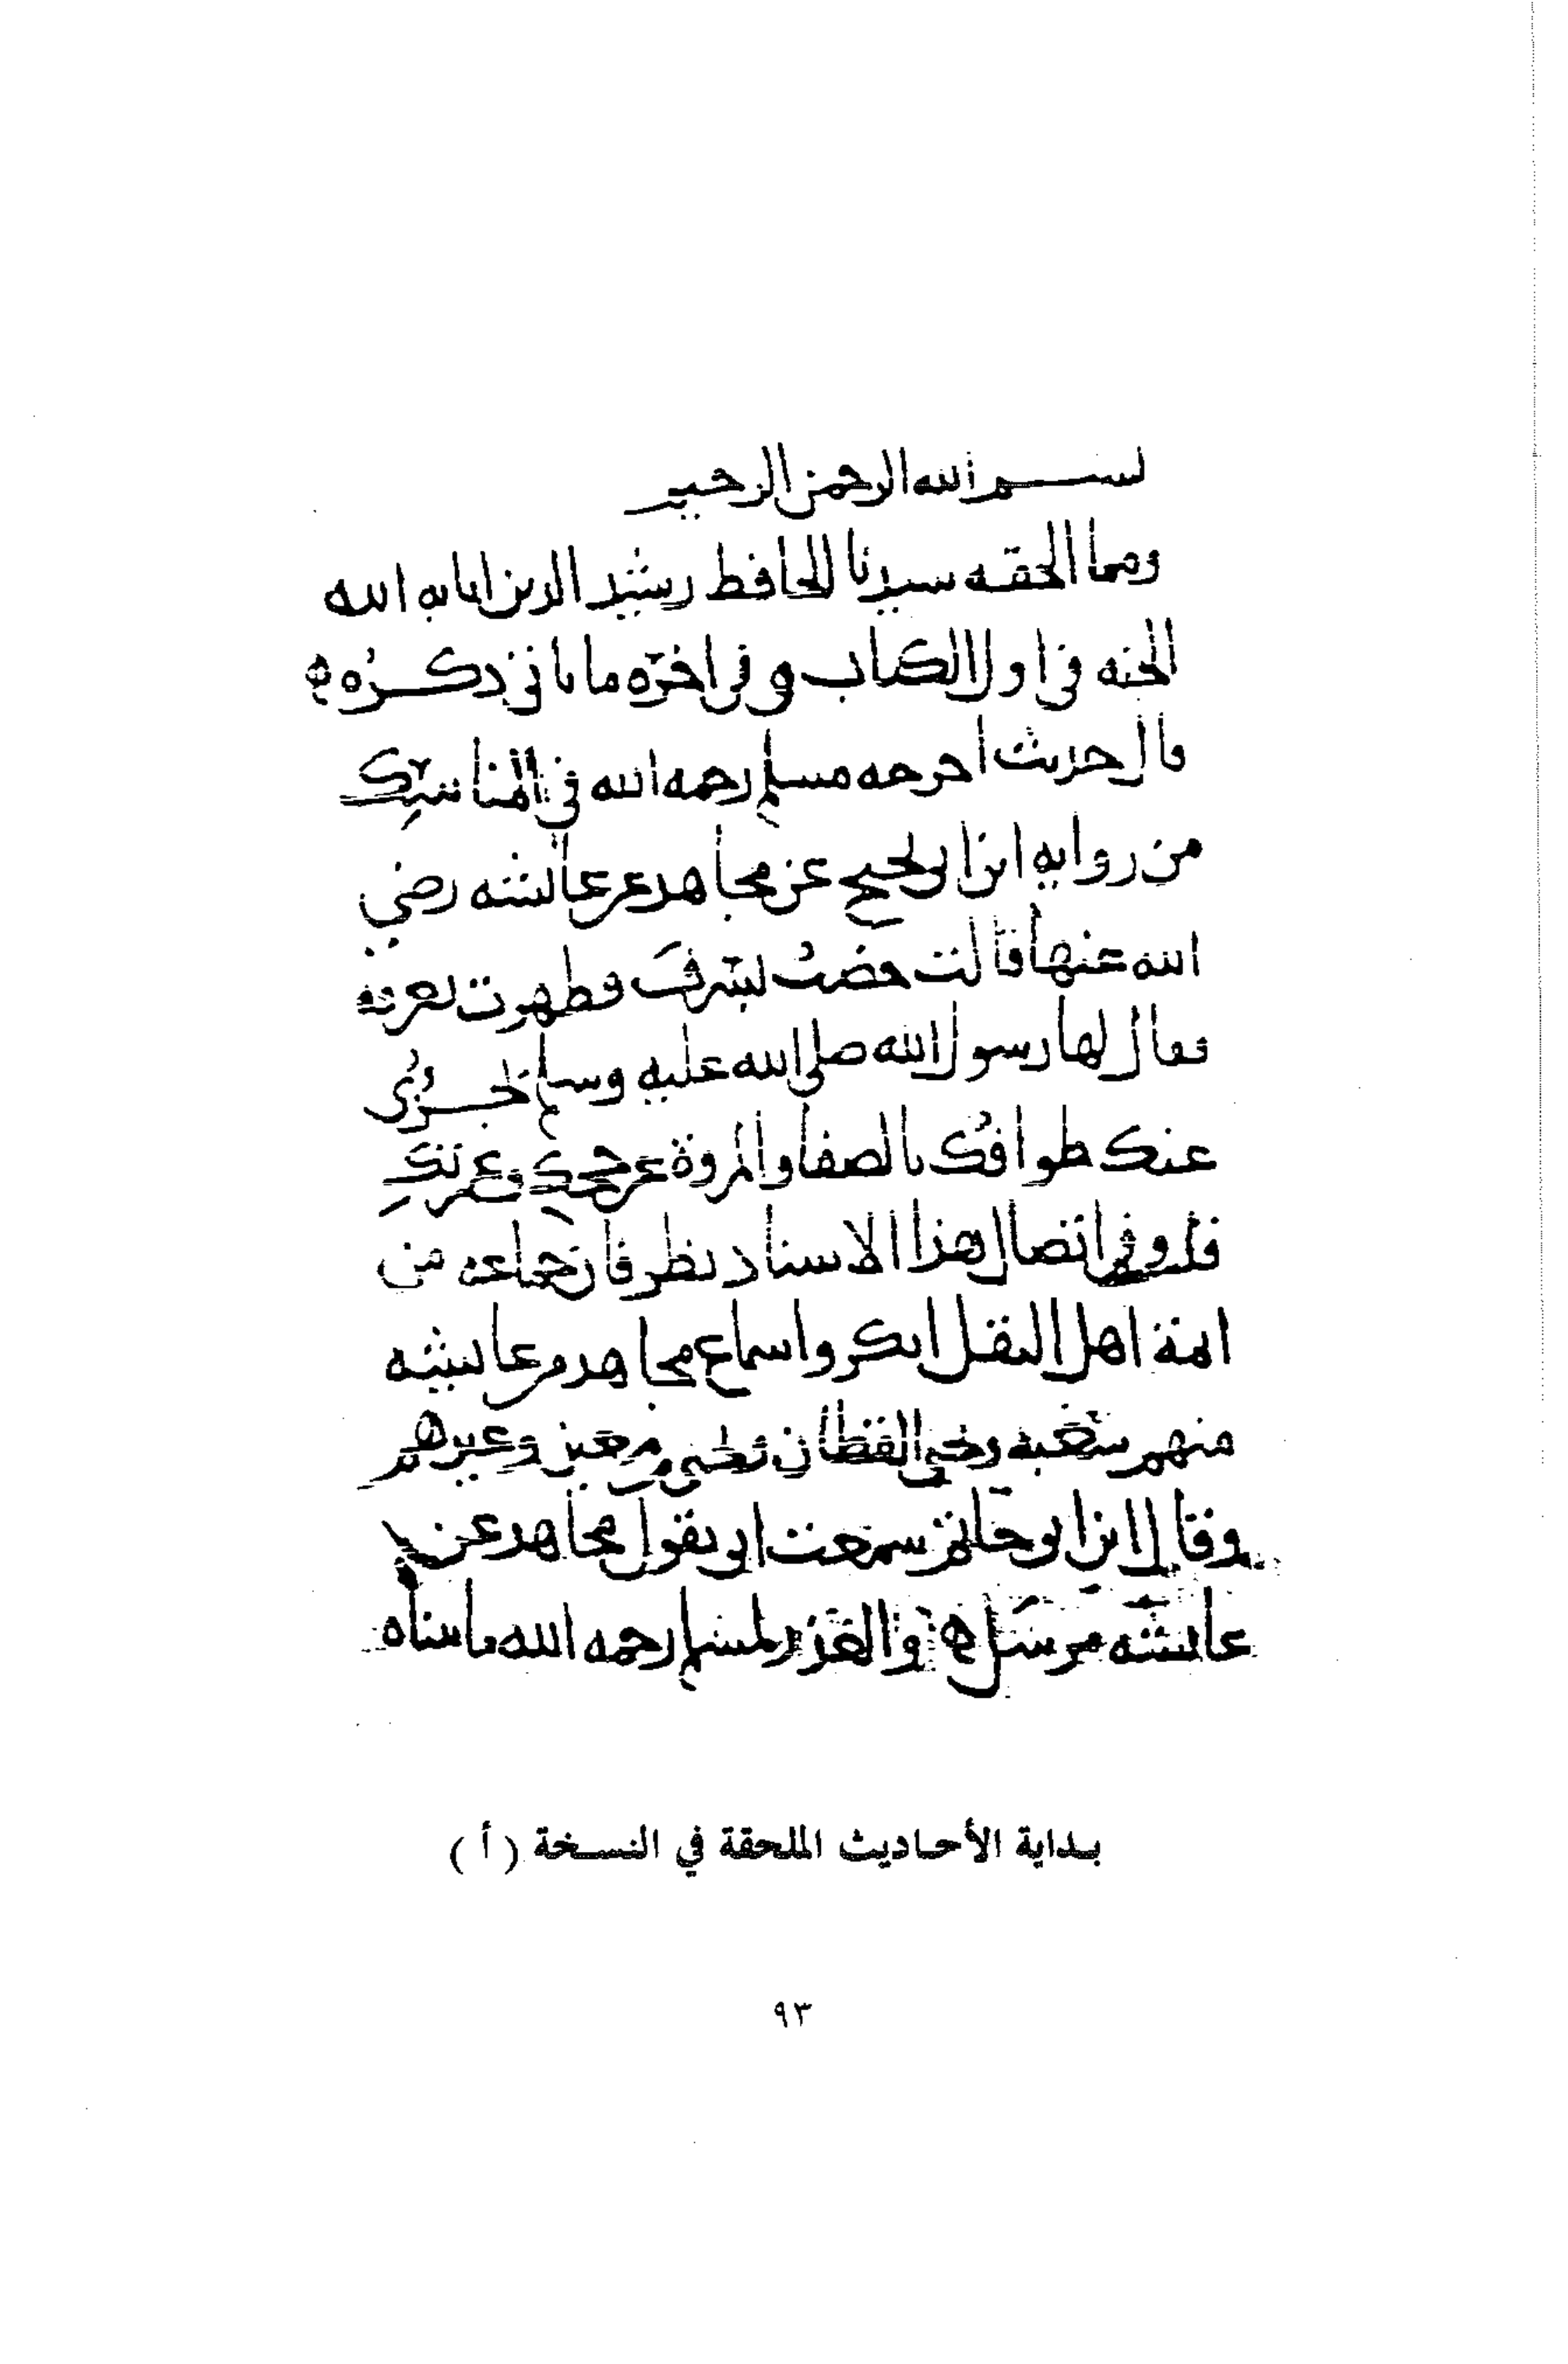 بسم الله الرحمن الرحيم
ومما الحقه سيدنا الحافظ رشيد الدين اثابه الله
الجنه في اول الكتاب وفي اخره ما ياتي ذكره
قال حديث اخرجه مسلم رحمه الله في المناسك
من روايه ابن ابي نجيح عن مجاهد عن عائشه رضي
الله عنها قالت حضت بسرف وطهرت بعرفه
فقال لها رسول الله صلى الله عليه وسلم يجزئ
عنك طوافك بالصفا والمروة عن حجك وعمرتك
قلت وفي اتصال هذا الاسناد نظر فان جماعه من
ائمة اهل النقل انكروا سماع مجاهد من عائشه
منهم شعبة ويحيى القطان ويحيى بن معين وغيرهم
وقال ابن ابي حاتم سمعت ابي يقول مجاهد عن
عائشه مرسل ه والعذر لمسلم رحمه الله ما بيناه
بداية الأحاديث الملحقة في النسخة (أ)
٩٣